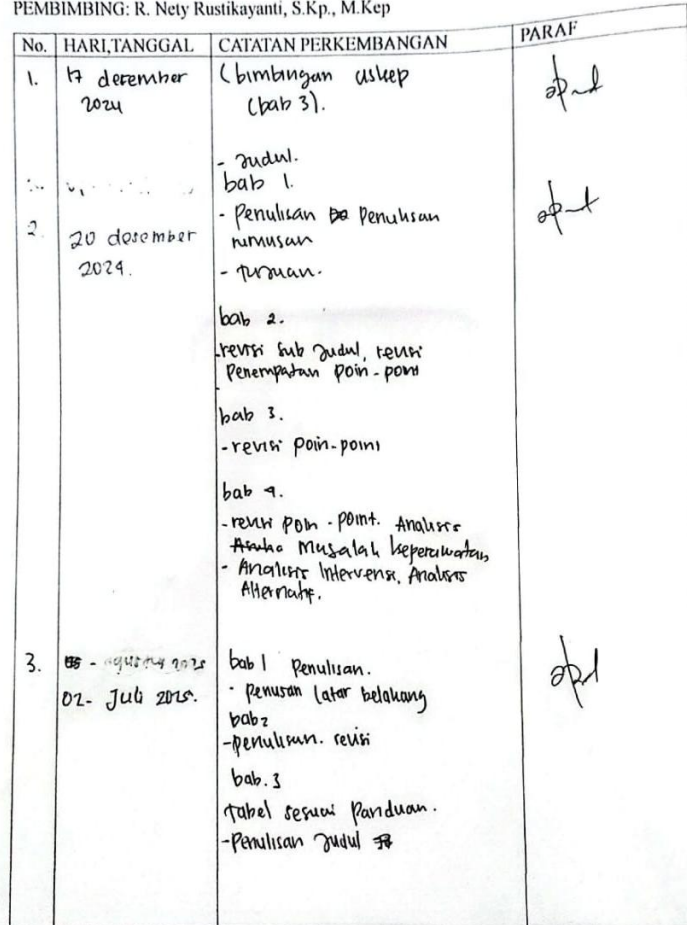 PEMBIMBING: R. Nety Rustikayanti, S.Kp., M.Kep
No. HARI,TANGGAL CATATAN PERKEMBANGAN PARAF
1. 17 desember 2024 (bimbingan askep
(bab 3).
- Judul.
bab 1.
- Penulisan Penulisan
rumusan
2. 20 desember
2024.
- tujuan.
bab 2.
- revisi sub Judul, revisi
Penempatan Poin-point
bab 3.
- revisi Poin-point
bab 4.
- revisi Poin-point. Analisis
Masalah keperawatan
- Analisis Intervensi. Analisis
Alternatif.
3. agustus 2025
02- Juli 2025.
bab 1 Penulisan.
- latar belakang
bab 2
- penulisan. revisi
bab. 3
tabel sesuai Panduan.
- Penulisan Judul